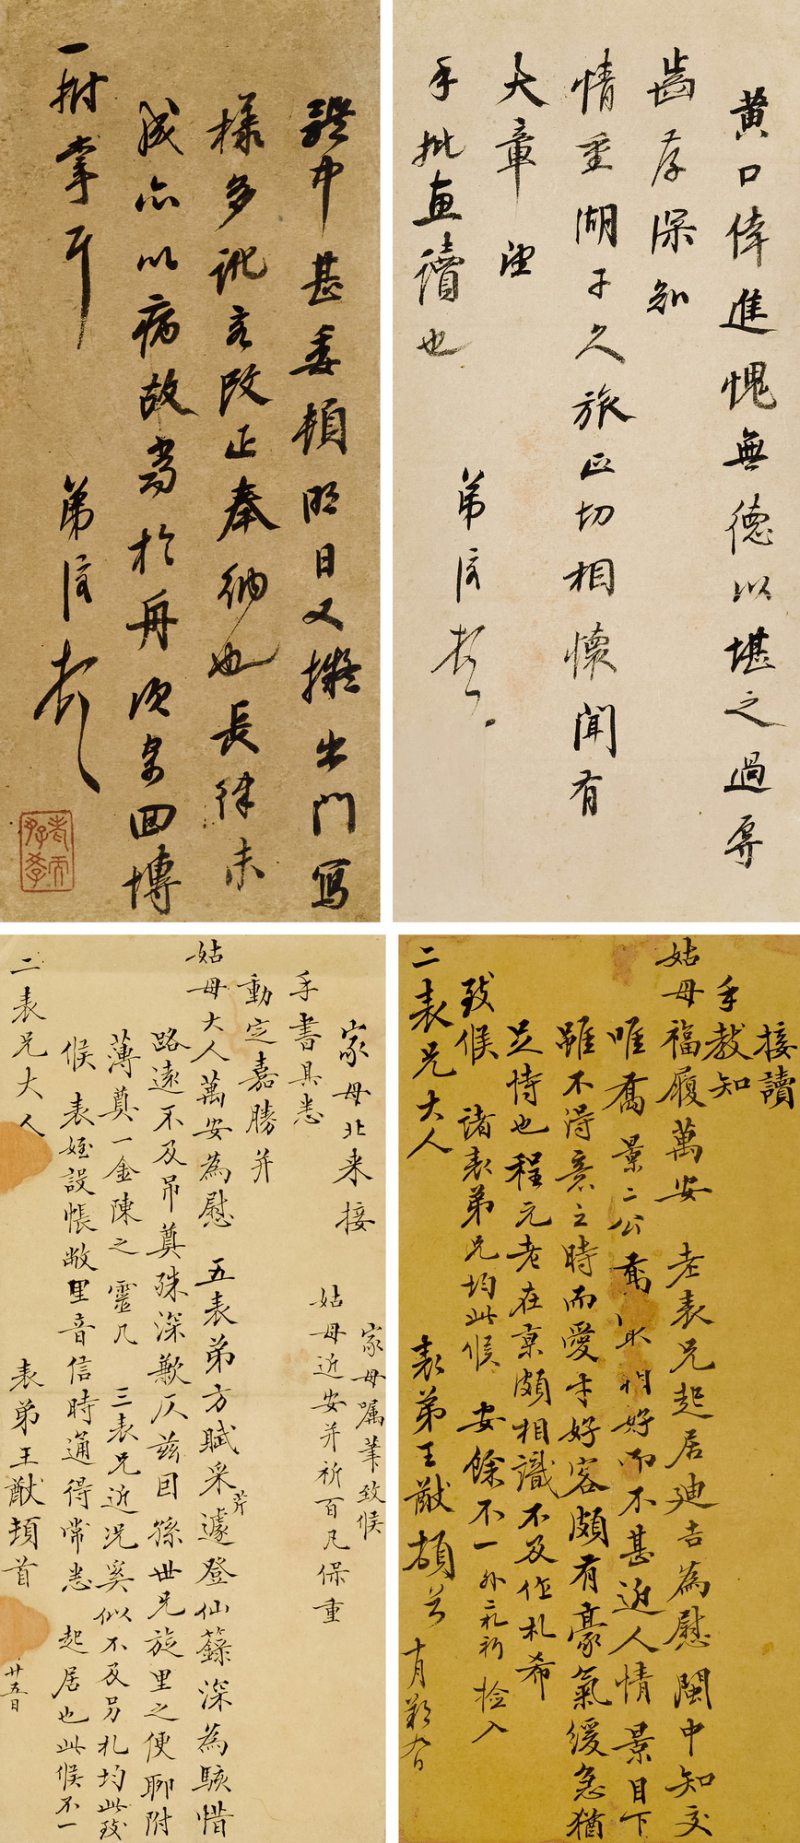 黄口倖進愧無德以堪之過辱
齒存深知
情重湖干久旅正切相懷聞有
大章望
手批直讀也
弟信頓首
體中甚委頓明日又擬出門寫
樣多訛若改正奉納也長律未
成亦以病故當於舟次回博
一拊掌耳
弟信頓首
老而好學
接讀
手教知
姑母福履萬安 老表兄起居迪吉為慰閩中知交
唯喬景二公喬相好而不甚近人情景目下
雖不得意之時而愛才好客頗有豪氣緩急猶
足恃也程元老在京頗相識不及作札希
致候 諸表弟兄均此候 安餘不一外二札祈檢入
二表兄大人
表弟王猷頓首 十月
家母囑筆致候
姑母近安并祈百凡保重
家母北來接
手書具悉
動定嘉勝并
姑母大人萬安為慰 五表弟方賦采芹遽登仙籙深為駭惜
路遠不及吊奠殊深歉仄茲因孫世兄旋里之便聊附
薄奠一金陳之 靈几 三表兄近況奚似不及另札均此致
候 表姪設帳敝里音信時通得常悉 起居也此候不一
二表兄大人
表弟王猷頓首 廿五日